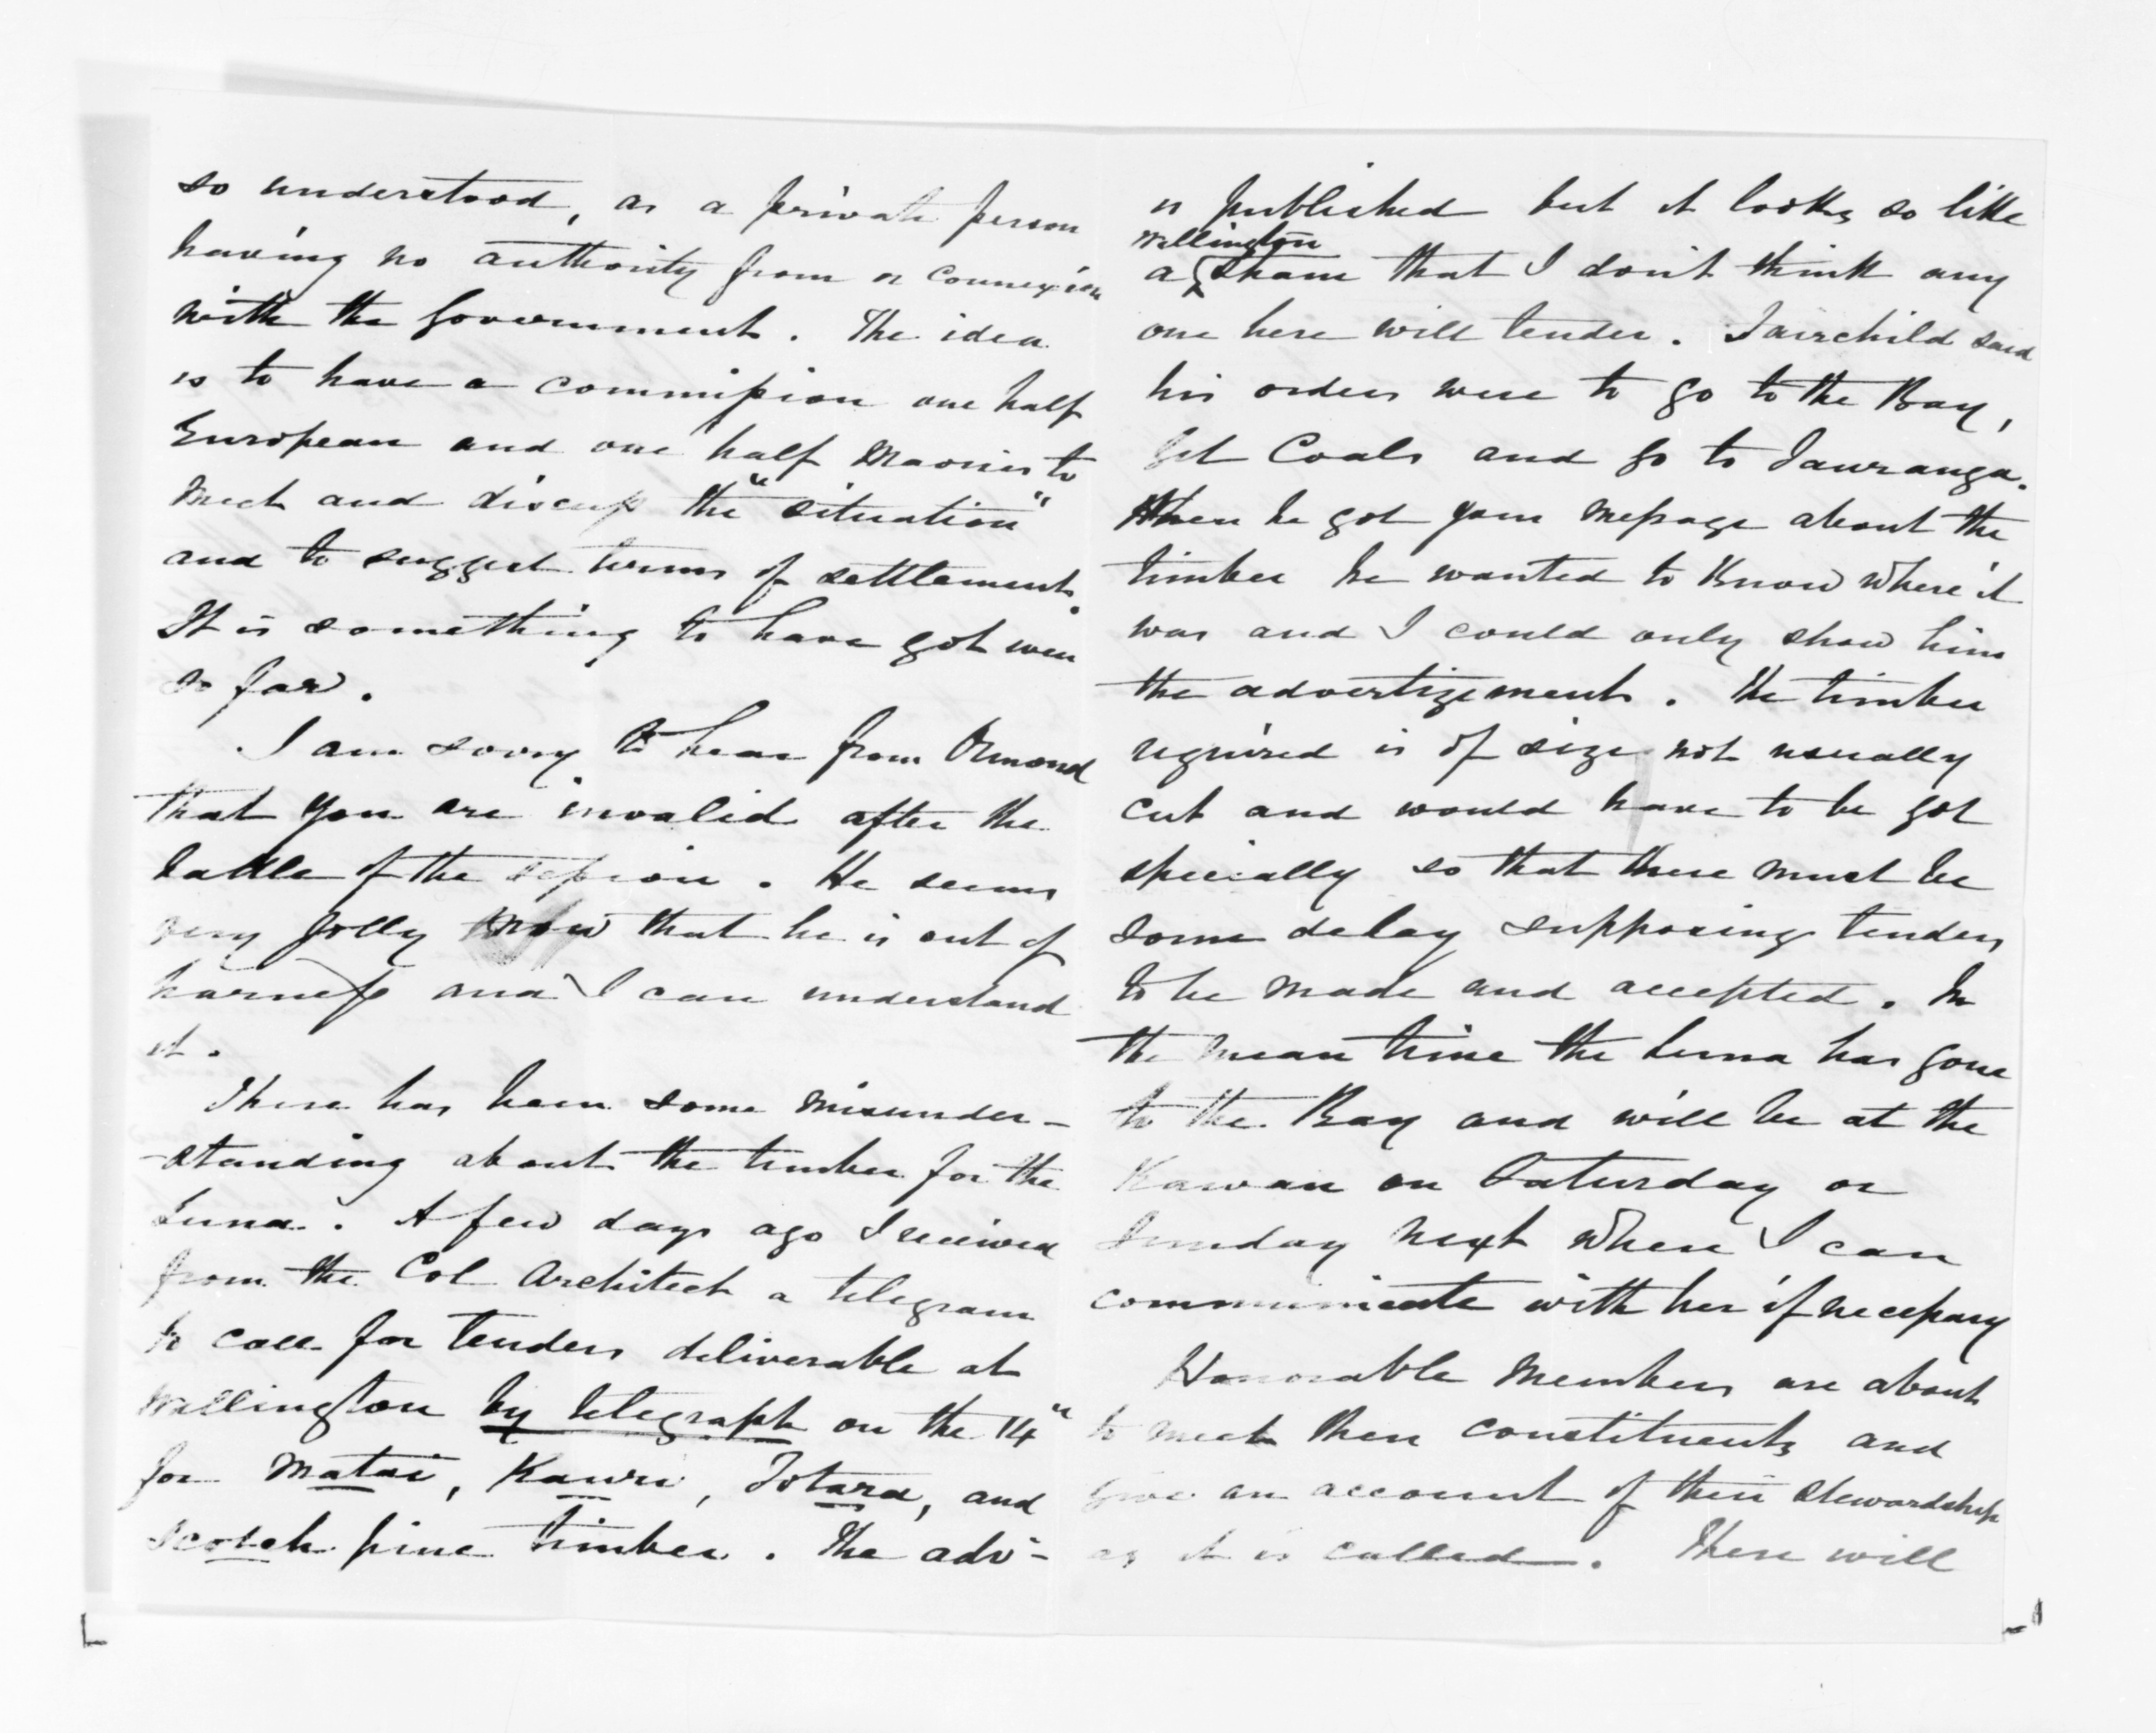 so understood, as a private person
having no authority from or connexion
with the Government. The idea
is to have a commission one half
European and one half Maories to
meet and discuss the "situation"
and to suggest terms of settlement.
It is something to have got even
so far.
I am sorry to hear from Ormond
that you are invalid after the
battle of the session. He seems
very jolly now that he is out of
harness and I can understand
it.
There has been some misunder-
-standing about the timber for the
Luna. A few days ago I received
from the Col Architect a telegram
to call for tenders deliverable at
Wellington by telegraph on the 14"
for Matai, Kauri, Totara, and
scotch pine timber. The adv-
is published but it looks so like
a Wellington sham that I don't think any
one here will tender. Fairchild said
his orders were to go to the Bay,
get Coals and go to Tauranga.
When he got your message about the
timber he wanted to know where it
was and I could only show him
the advertizement. The timber
required is of size not usually
cut and would have to be got
specially so that there must be
some delay supposing tenders
to be made and accepted. In
the mean time the Luna has gone
to the Bay and will be at the
Kawau on Saturday or
Sunday next where I can
communicate with her if necessary
Honorable Members are about
to meet their constituents and
give an account of their stewardship
as it is called. There will